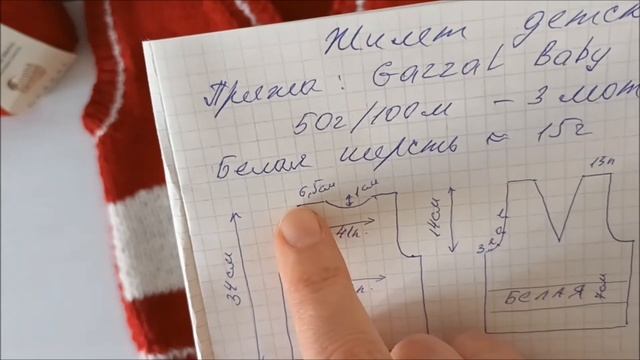 Жилет детск
Пряжа: Gazzal Baby
50г/100м - 3 мот
Белая шерсть ≈ 15г
6,5см 1см
13п
41п.
14см
34см
3 2 2 1
БЕЛАЯ 7см